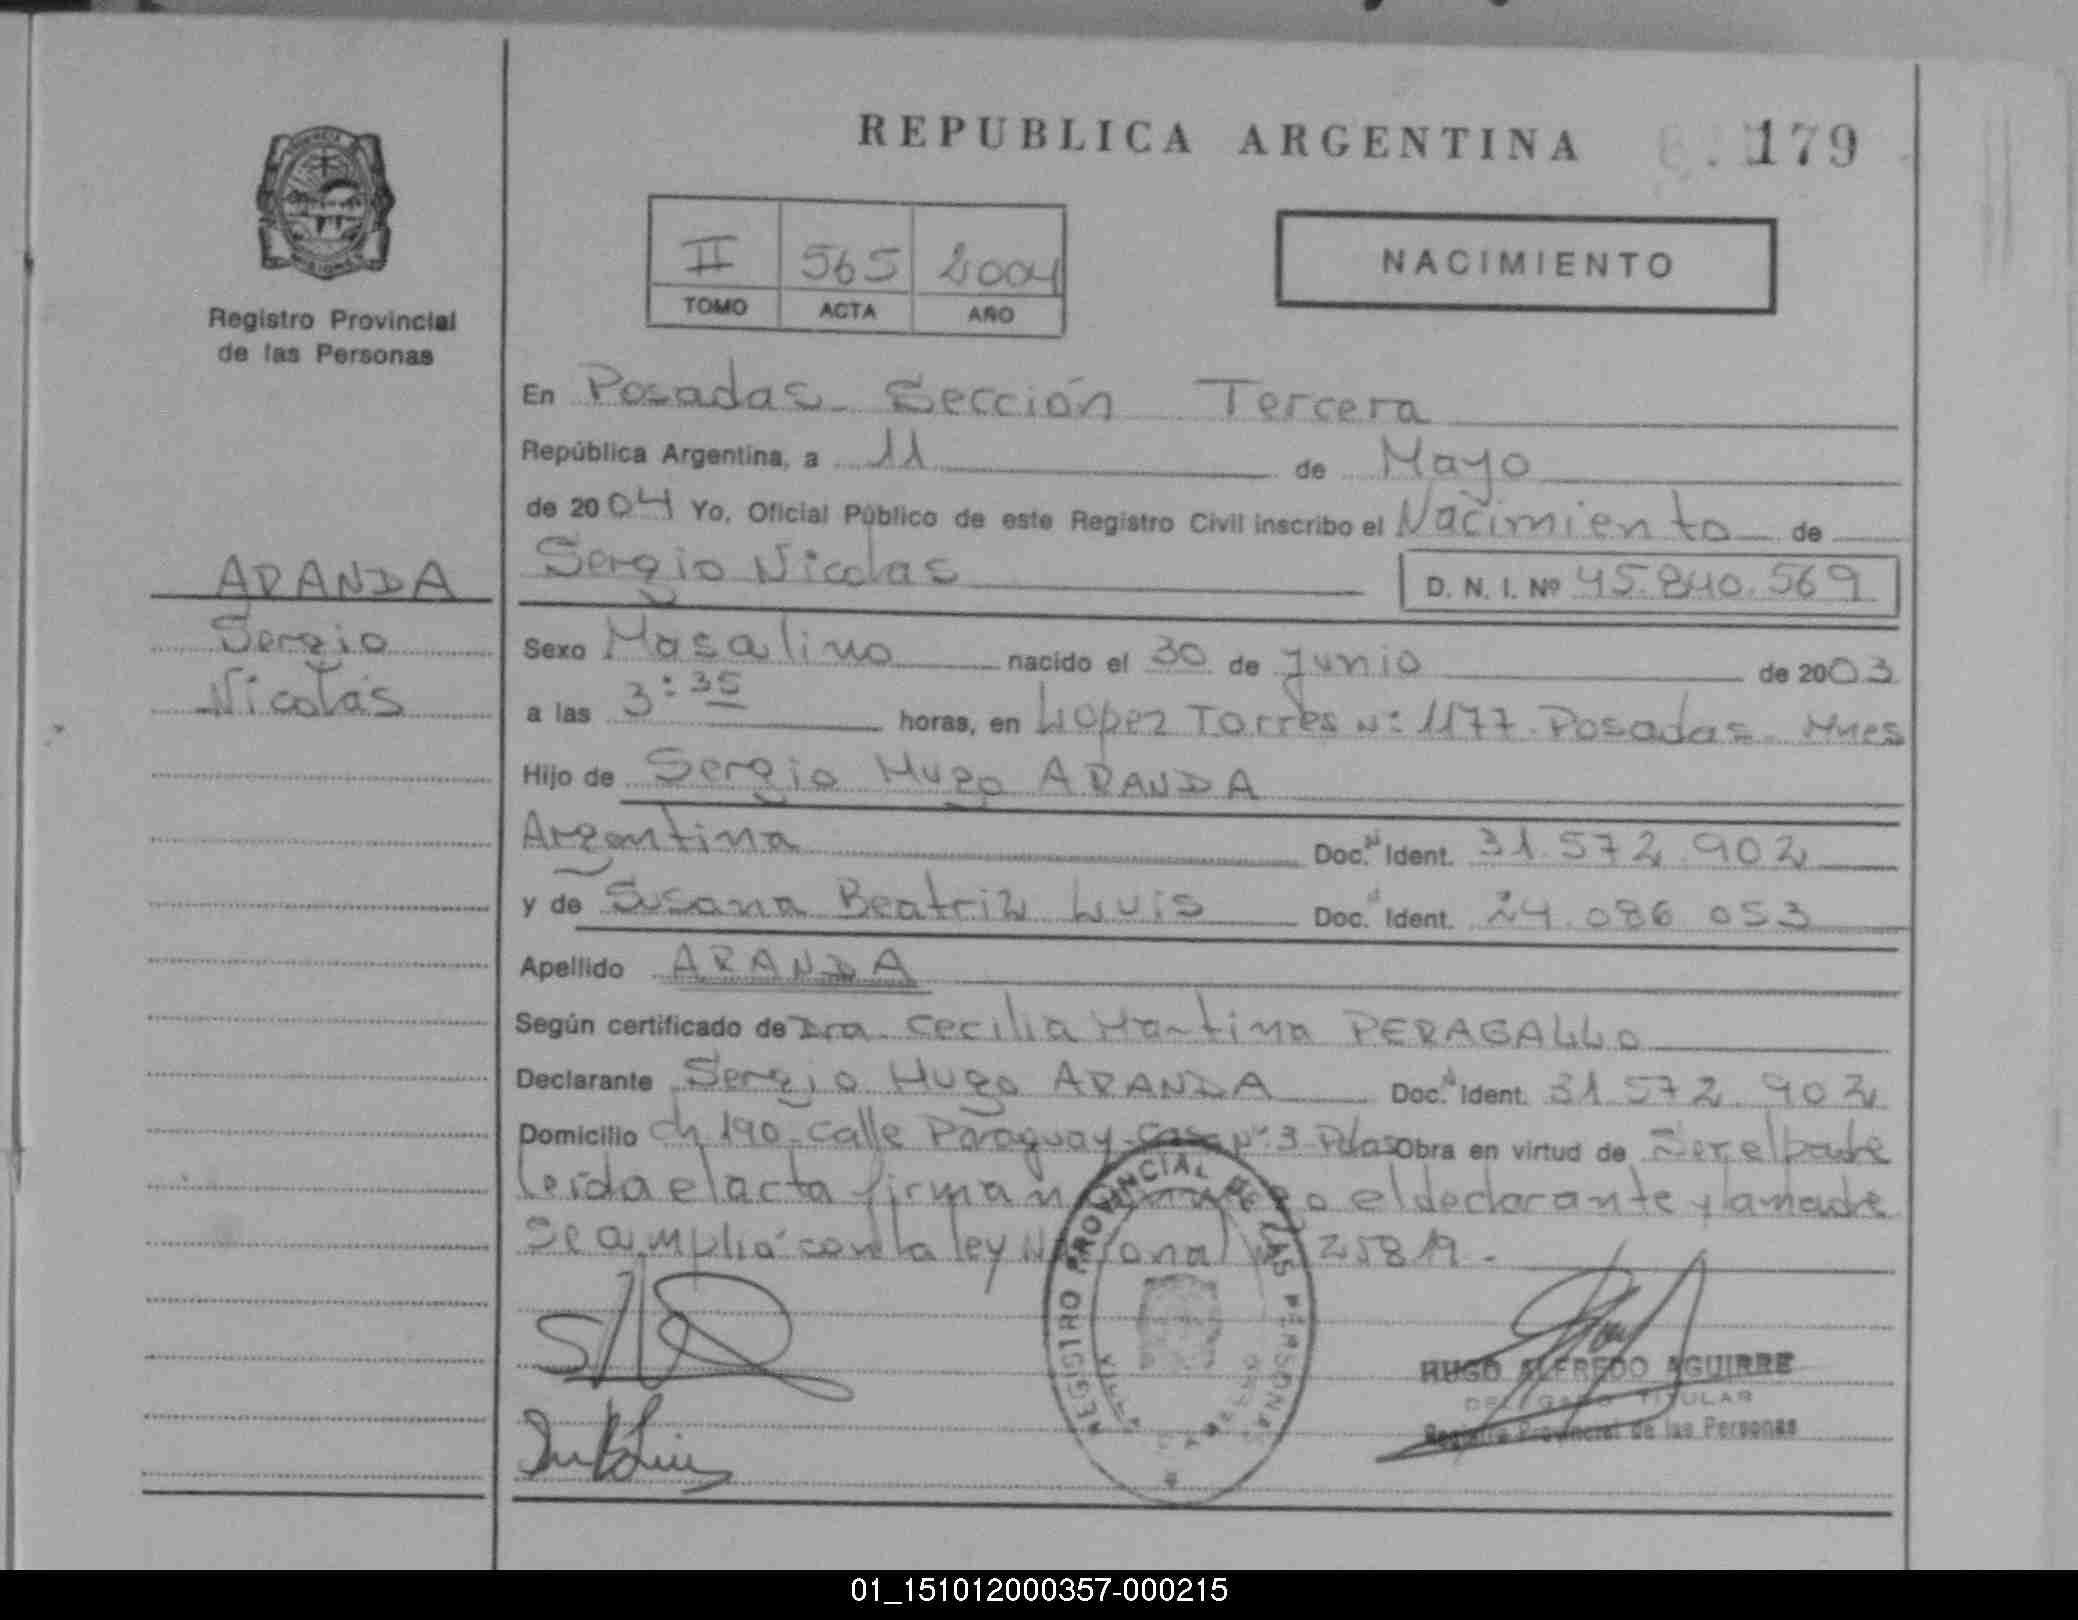 REPUBLICA ARGENTINA
179
PROVINCIA
MISIONES
Registro Provincial
de las Personas
II 565 2004
TOMO ACTA AÑO
NACIMIENTO
En Posadas Sección Tercera
República Argentina, a 11 de Mayo
de 2004 Yo, Oficial Público de este Registro Civil inscribo el Nacimiento de
ARANDA
Sergio
Nicolás
Sergio Nicolas D. N. I. Nº 45.840.569
Sexo Masculino nacido el 30 de Junio de 2003
a las 3:35 horas, en López Torres Nº 1177 Posadas Mnes
Hijo de Sergio Hugo ARANDA
Argentina Doc. Ident. 31.572.902
y de Susana Beatriz Luis Doc. Ident. 24.086.053
Apellido ARANDA
Según certificado de Dra Cecilia Martina PERAGALLO
Declarante Sergio Hugo ARANDA Doc. Ident. 31.572.902
Domicilio ch 190 calle Paraguay Casa Nº 3 Pdas Obra en virtud de Ser el padre
leída el acta firman el declarante y la madre
se amplió con la ley Nacional 25819.-
REGISTRO PROVINCIAL DE LAS PERSONAS
HUGO ALFREDO AGUIRRE
DELEGADO TITULAR
Registro Provincial de las Personas
01_151012000357-000215